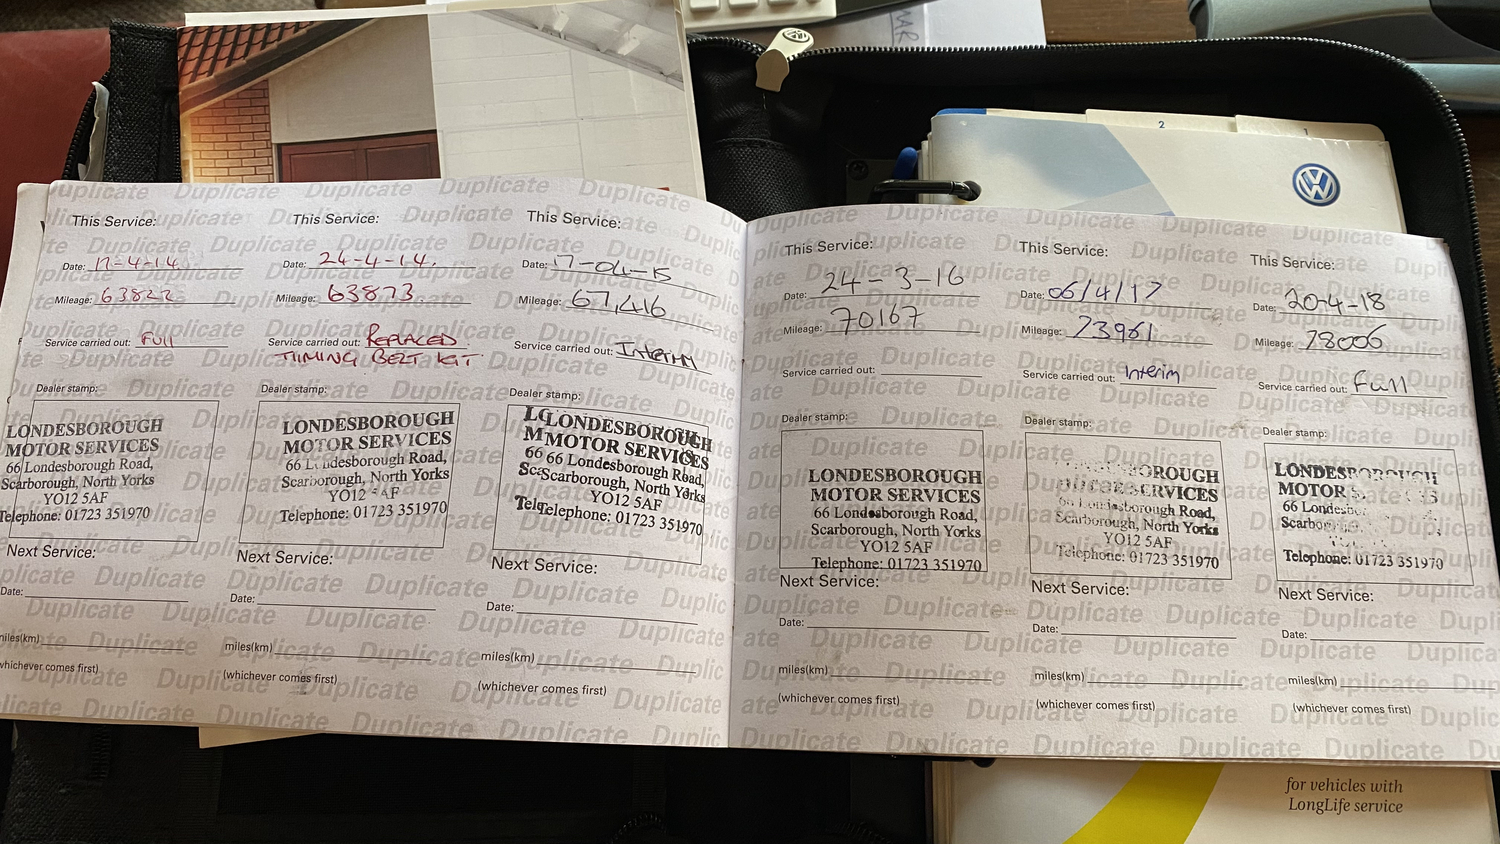 MAR
2
1
This Service:
Date: 17-4-14
Mileage: 63822
Service carried out: FULL
Dealer stamp:
LONDESBOROUGH
MOTOR SERVICES
66 Londesborough Road,
Scarborough, North Yorks
YO12 5AF
Telephone: 01723 351970
Next Service:
Date:
miles(km)
(whichever comes first)
This Service:
Date: 24-4-14.
Mileage: 63873
Service carried out: REPLACED
TIMING BELT KIT
Dealer stamp:
LONDESBOROUGH
MOTOR SERVICES
66 Londesborough Road,
Scarborough, North Yorks
YO12 5AF
Telephone: 01723 351970
Next Service:
Date:
miles(km)
(whichever comes first)
This Service:
Date: 17-04-15
Mileage: 67,416
Service carried out: Interim
Dealer stamp:
LONDESBOROUGH
MOTOR SERVICES
66 Londesborough Road,
Scarborough, North Yorks
YO12 5AF
Telephone: 01723 351970
Next Service:
Date:
miles(km)
(whichever comes first)
This Service:
Date: 24-3-16
Mileage: 70167
Service carried out:
Dealer stamp:
LONDESBOROUGH
MOTOR SERVICES
66 Londesborough Road,
Scarborough, North Yorks
YO12 5AF
Telephone: 01723 351970
Next Service:
Date:
miles(km)
(whichever comes first)
This Service:
Date: 06/4/17
Mileage: 73961
Service carried out: Interim
Dealer stamp:
OROUGH
SERVICES
Londesborough Road,
Scarborough, North Yorks
YO12 5AF
Telephone: 01723 351970
Next Service:
Date:
miles(km)
(whichever comes first)
This Service:
Date: 20-4-18
Mileage: 78006
Service carried out: Full
Dealer stamp:
LONDESBOROUGH
MOTOR
66 Londesbor
Scarboro
Telephone: 01723 351970
Next Service:
Date:
miles(km)
(whichever comes first)
Duplicate
for vehicles with
LongLife service